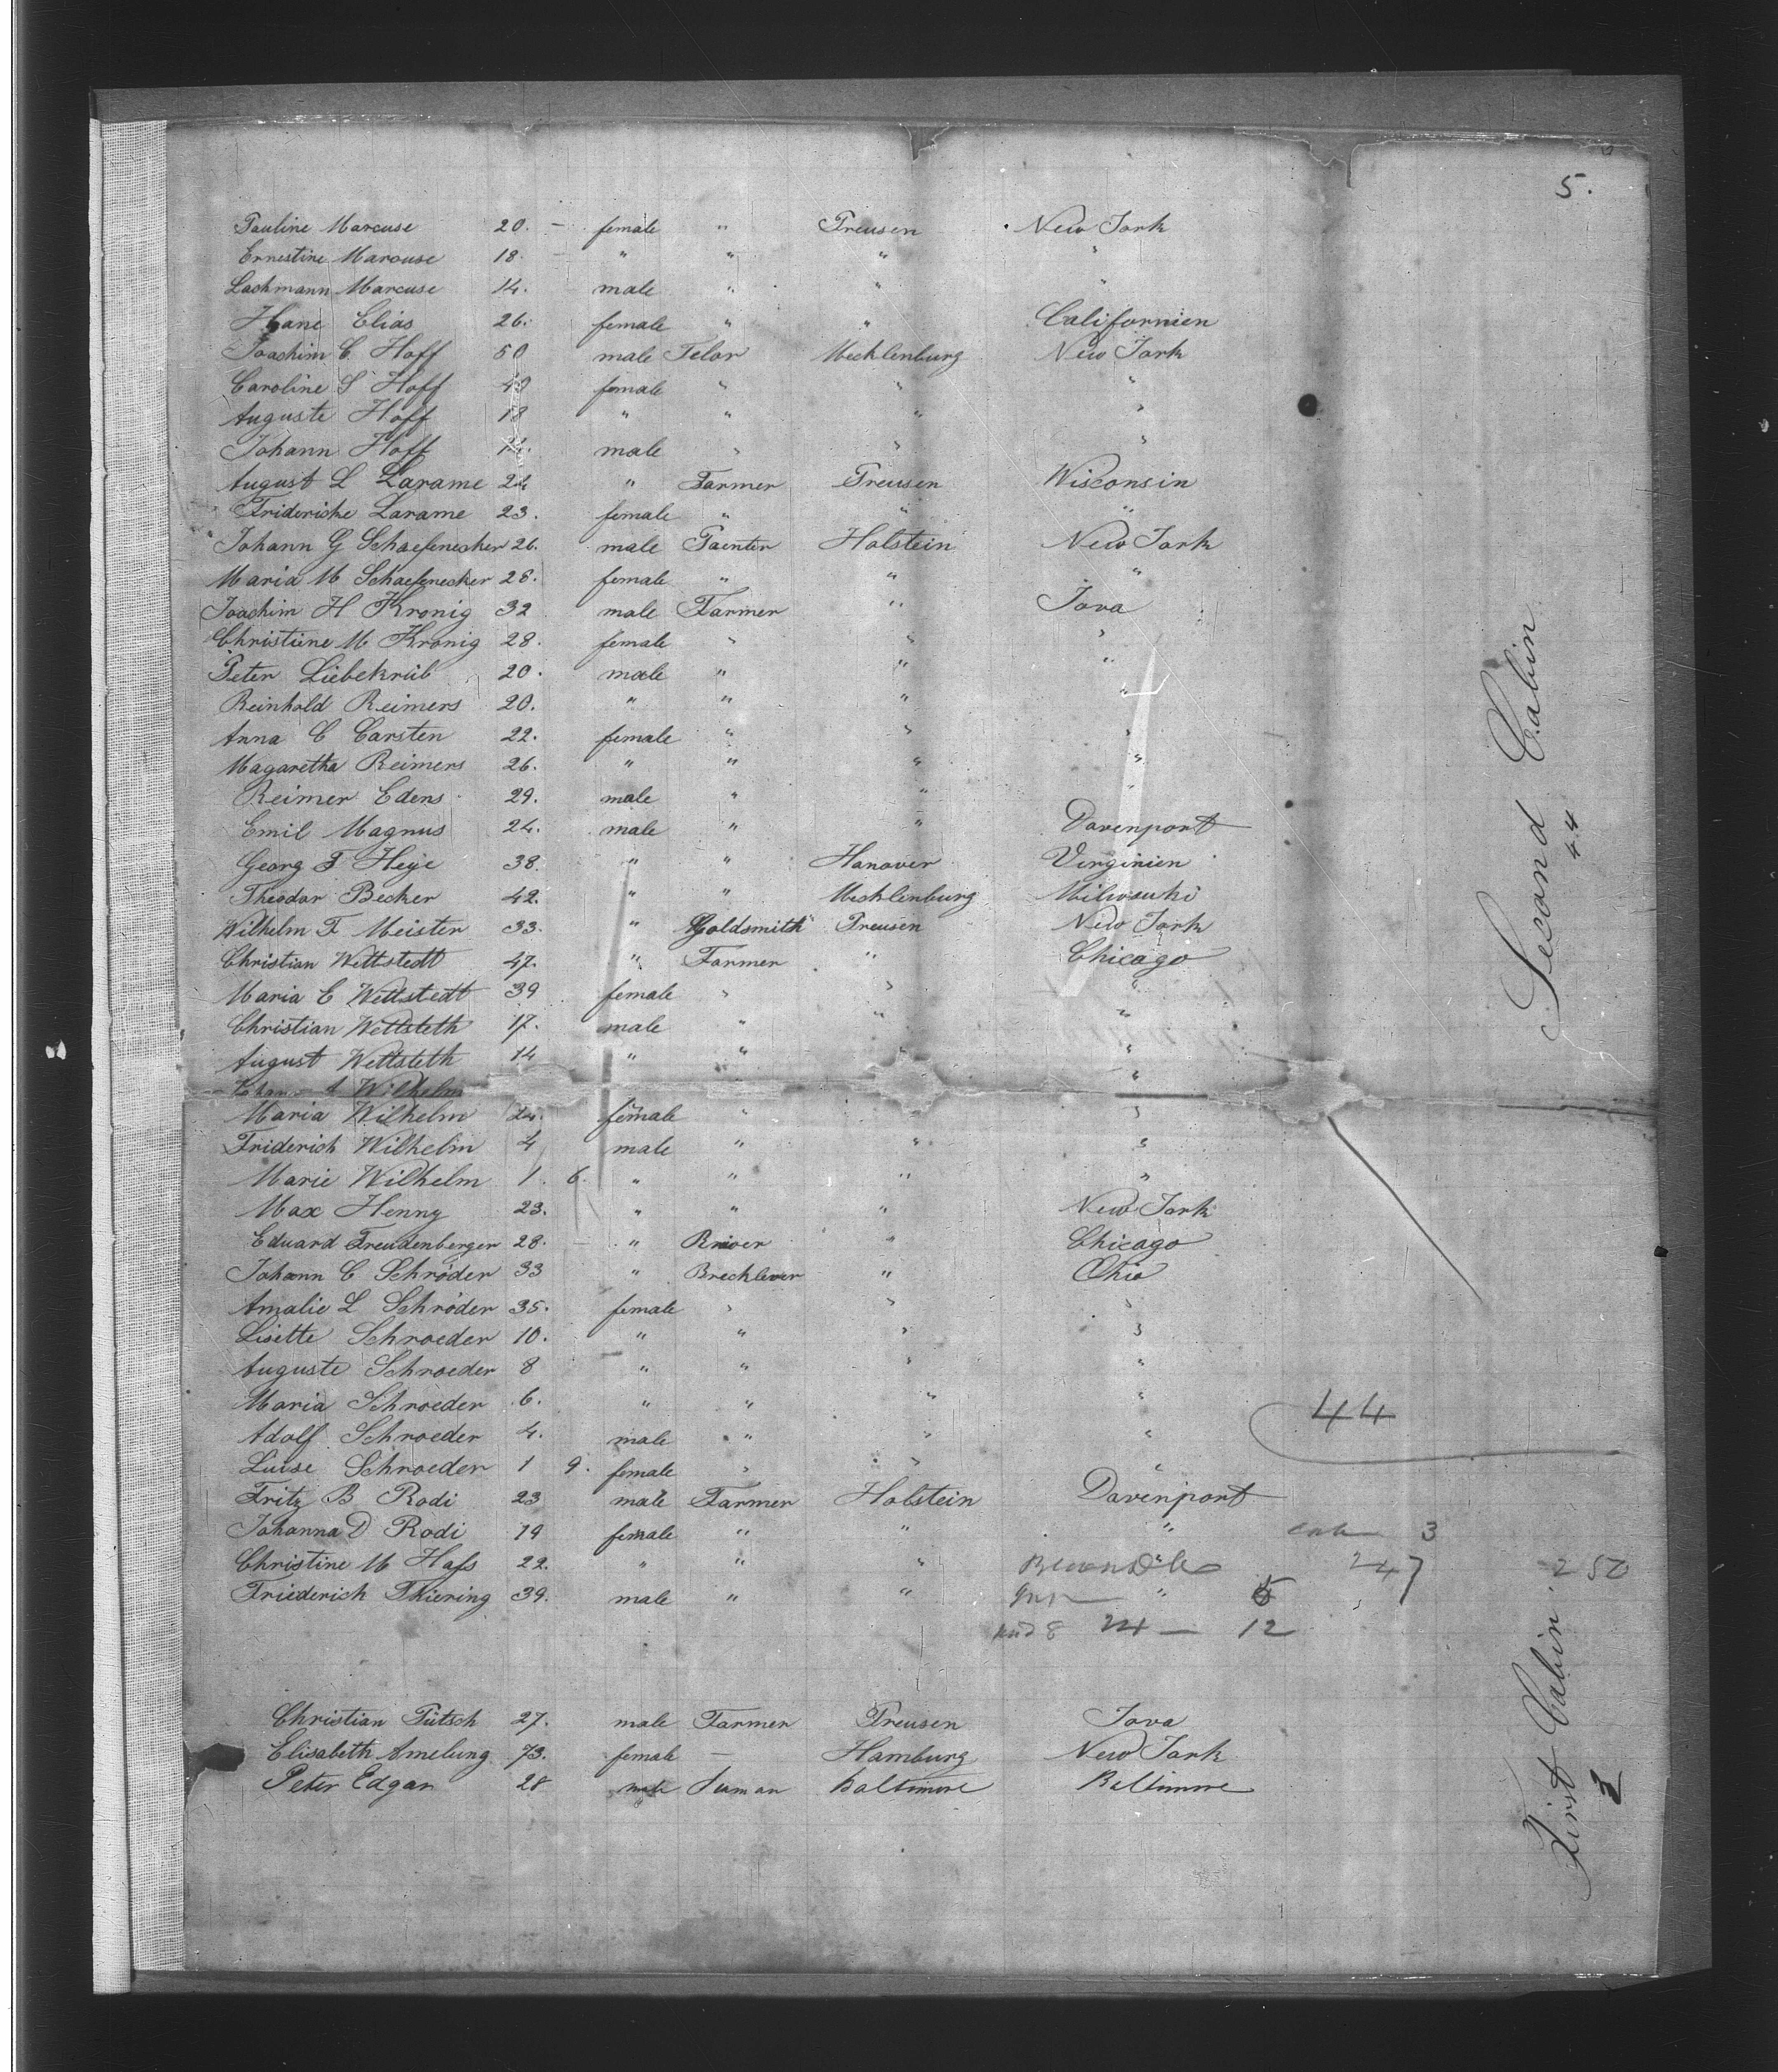 5.
Pauline Marcuse 20. — female " Preusen New York
Ernestine Marcuse 18. — " " " "
Lachmann Marcuse 14. male " " "
Hane Elias 26. female " " Californien
Joachim C Hoff 50 male Telor Mecklenburg New York
Caroline S Hoff 40 female " " "
Auguste Hoff 18 " " " "
Johann Hoff 14. male " " "
August L Larame 24 " Farmer Preusen Wisconsin
Friderieke Larame 23. female " " "
Johann G Schaefenecker 26. male Painter Holstein New York
Maria M Schaefenecker 28. female " " "
Joachim H Kronig 32 male Farmer " Iova
Christiine M Kronig 28. female " " "
Peter Liebekrüb 20. male " " "
Reinhold Reimers 20. " " " "
Anna C Carsten 22. female " " "
Magaretha Reimers 26. " " " "
Reimer Edens 29. male " " "
Emil Magnus 24. male " " Davenport
Georg F Heye 38. " " Hanover Virginien
Theodor Becker 42. " " Mecklenburg Milwauki
Wilhelm F Meister 33. " Goldsmith Preusen New York
Christian Wettstedt 47. " Farmer " Chicago
Maria E Wettstedt 39 female " " "
Christian Wettsteth 17. male " " "
August Wettsteth 14 " " " "
Wilhelm "
Maria Wilhelm 24. female " "
Friderich Wilhelm 4 male " " "
Marie Wilhelm 1. 6. " " " "
Max Henny 23. " " " New York
Eduard Freudenberger 28. — " Briver " Chicago
Johann C Schröder 33 " Brechlever " Ohio
Amalie L Schröder 35. female " " "
Lisette Schroeder 10. " " " "
Auguste Schroeder 8 " " " "
Maria Schroeder 6. " " " "
Adolf Schroeder 4. male " " "
Luise Schroeder 1 9. female " " "
Fritz B Rodi 23 male Farmer Holstein Davenport
Johanna D Rodi 19 female " " "
Christine M Hass 22. " " " "
Friederich Thiering 39. male " " "
44
3
247
250
12
Christian Pütsch 27. male Farmer Preusen Iova
Elisabeth Amelung 73. female — Hamburg New York
Peter Edgar 28 male Seaman Baltimore Baltimore
Second Cabin
44
First Cabin
3